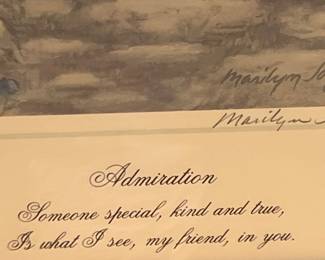 Marilyn
Marilyn
Admiration
Someone special, kind and true,
Is what I see, my friend, in you.